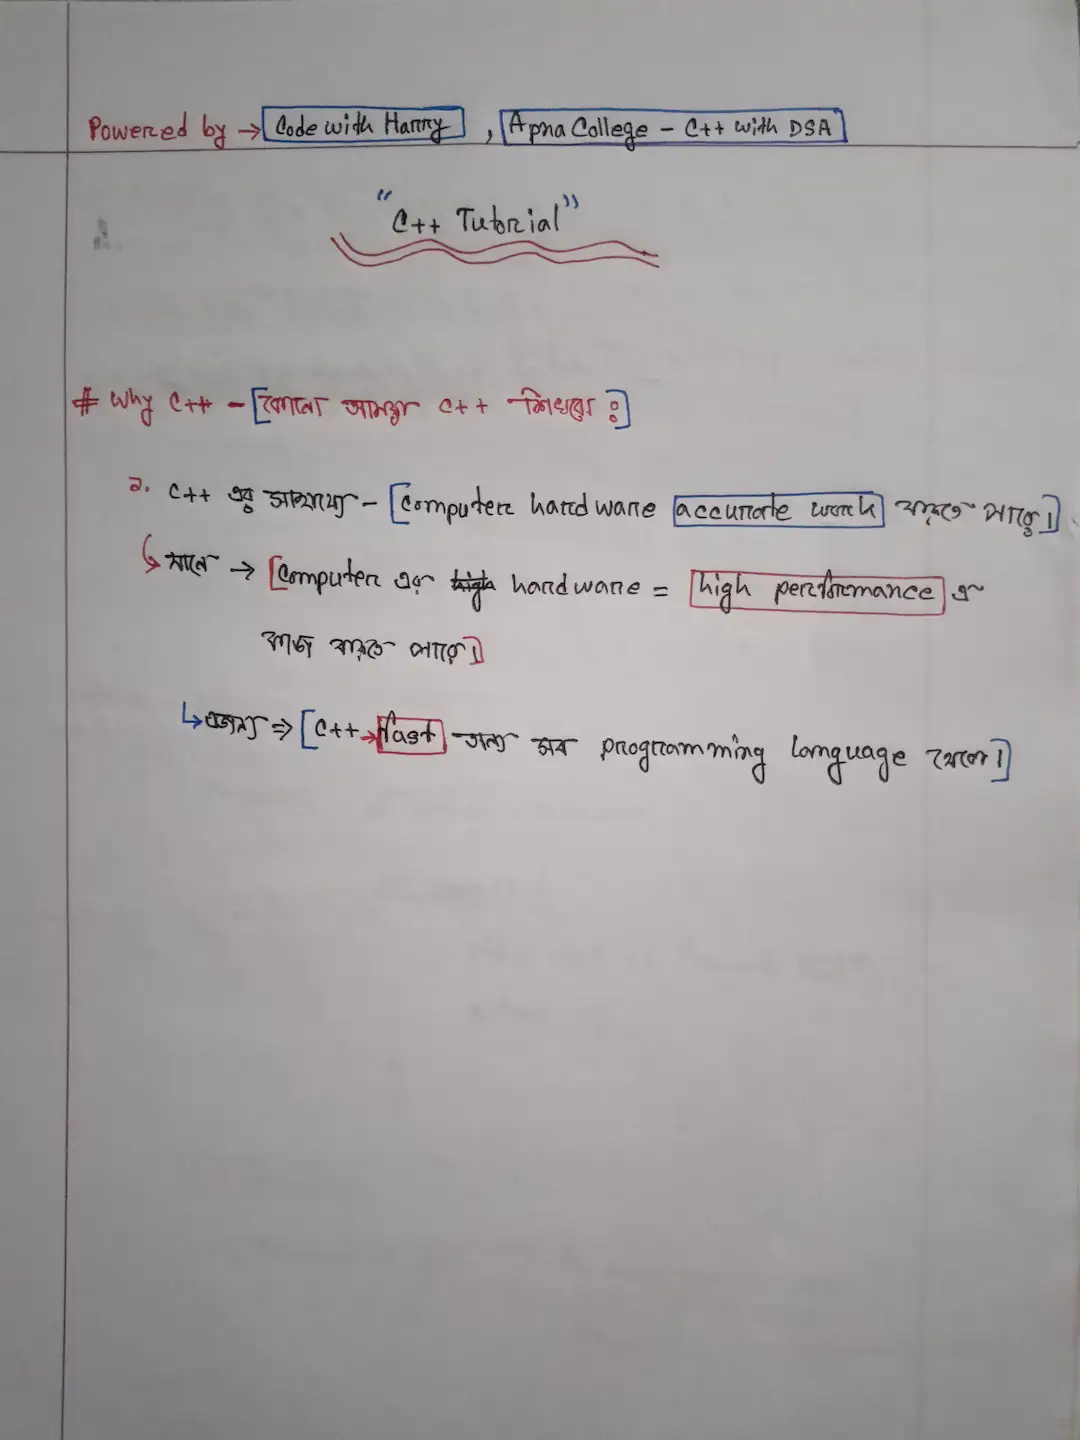 Powered by → Code with Harry , Apna College - C++ with DSA
"C++ Tutorial"
# Why C++ - [কোনো আমরা C++ শিখবো :]
১. C++ এর সাহায্যে - [Computer hardware accurate work করতে পারে।]
↳ মানে → [Computer এর high hardware = high performance এ
কাজ করতে পারে।]
↳ এজন্য ⇒ [C++ → fast অন্য সব programming language থেকে।]